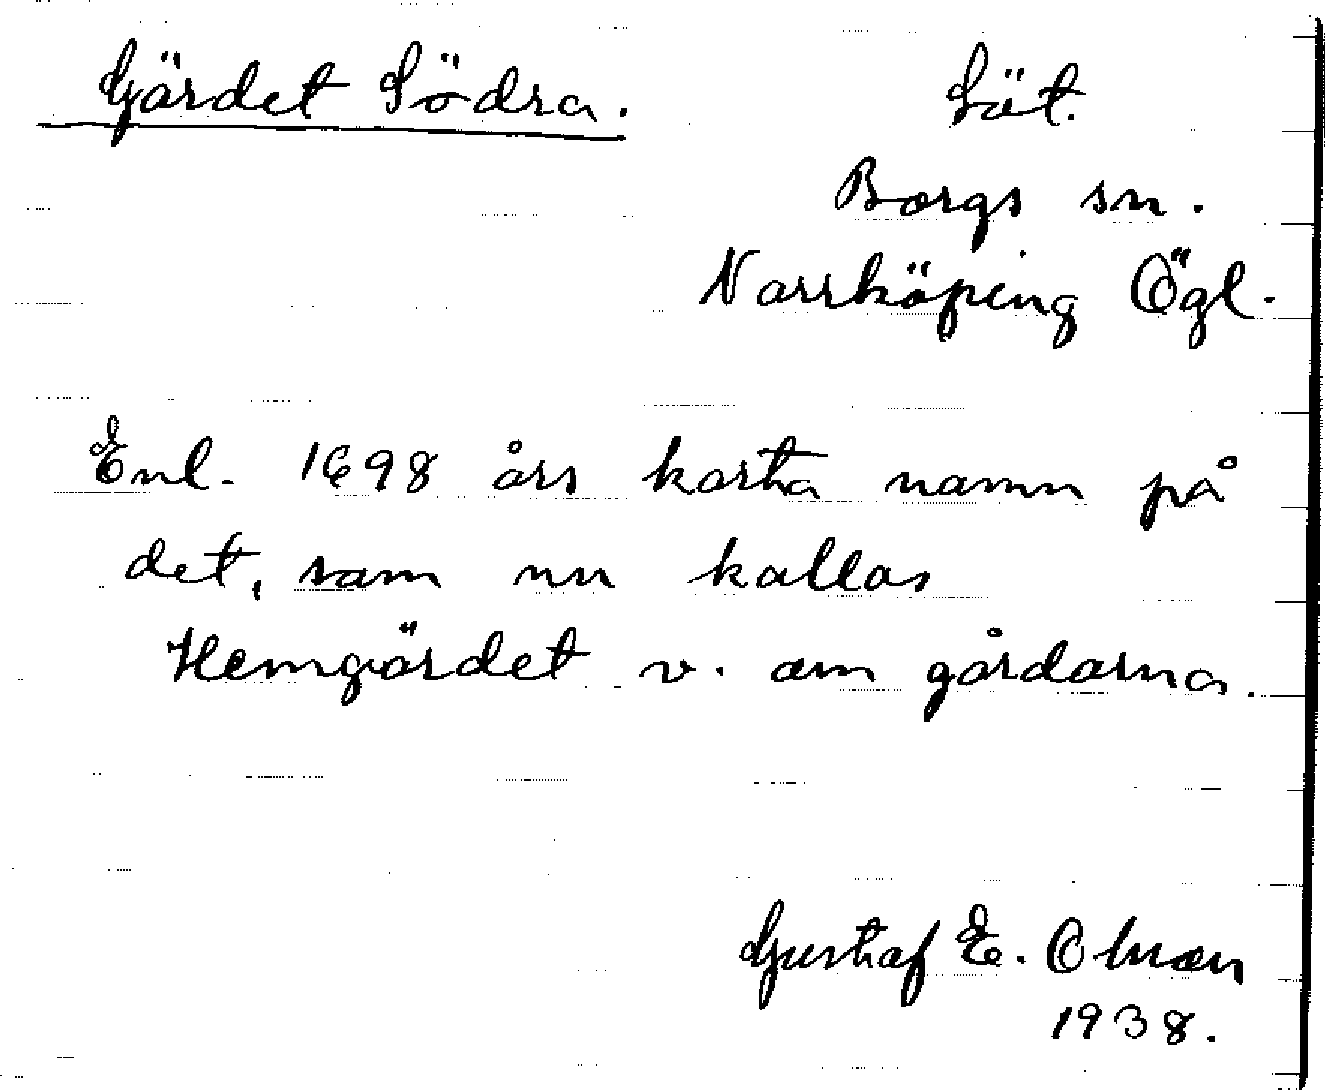 Gärdet Södra. Löt.
Borgs sn.
Norrköping Ögl.
Enl. 1698 års karta namn på
det, som nu kallas
Hemgärdet v. om gårdarna.
Gustaf E. Olsson
1938.